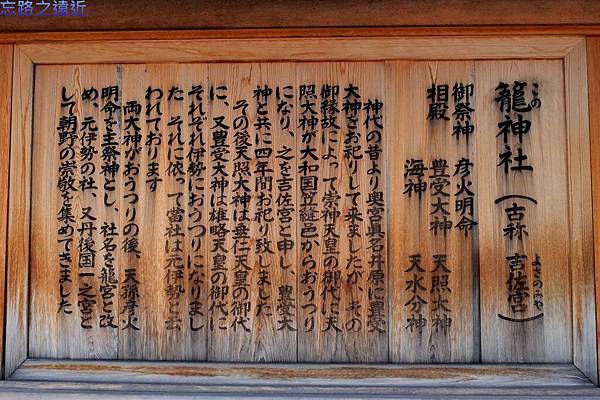 忘路之遠近
この
籠神社(古称 吉佐宮)
よさのみや
御祭神 彦火明命
相殿 豊受大神 天照大神
海神 天水分神
神代の昔より奥宮眞名井原に豊受
大神をお祀りして来ましたが、その
御縁故によって崇神天皇の御代に天
照大神が大和国笠縫邑からおうつり
になり、之を吉佐宮と申し、豊受大
神と共に四年間お祀り致しました
その後天照大神は垂仁天皇の御代
に、又豊受大神は雄略天皇の御代に
それぞれ伊勢におうつりになりまし
た それに依って當社は元伊勢と云
われております
両大神がおうつりの後、天孫彦火
明命を主祭神とし、社名を籠宮と改
め、元伊勢の社、又丹後国一之宮と
して朝野の崇敬を集めてきました